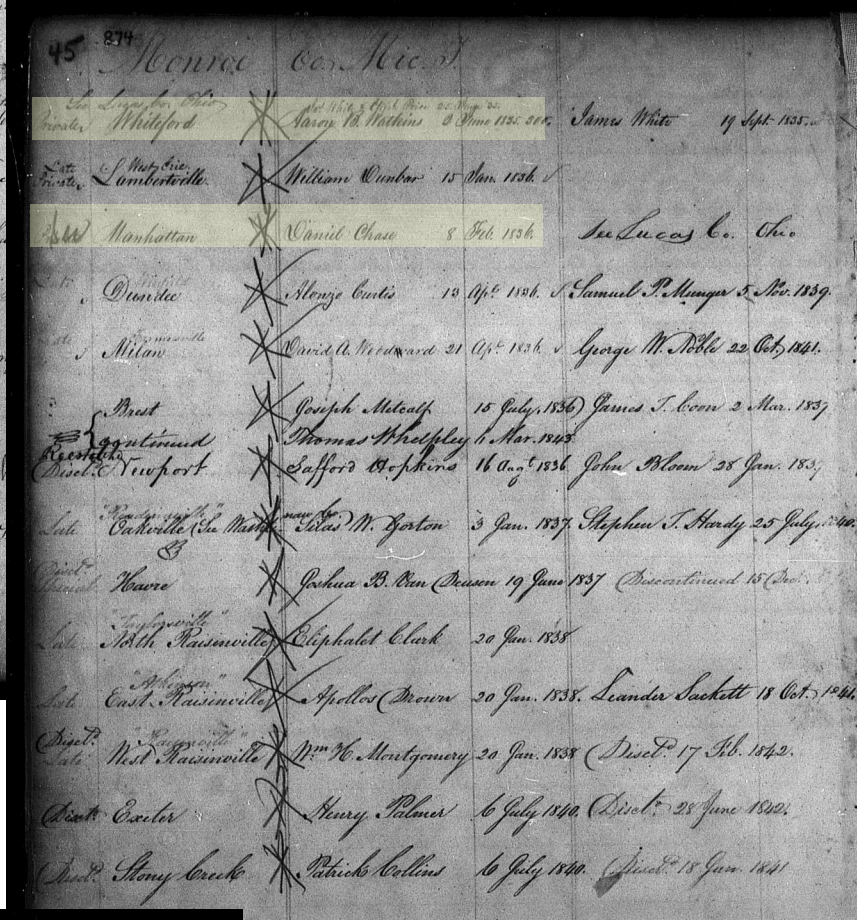 45 874
Monroe Co. Mic. T.
See Lucas Co. Ohio
Private Whiteford Aaron B. Watkins 3 June 1835. James White 19 Sept. 1835.
Late West Erie
Private Lambertville William Dunbar 15 Jan. 1836.
Manhattan Daniel Chase 8 Feb. 1836 See Lucas Co. Ohio
Late
Dundee Alonzo Curtis 13 Apl. 1836. Samuel P. Munger 5 Nov. 1839.
Late
Milan David A. Woodward 21 Apl. 1836. George W. Noble 22 Oct. 1841.
Brest Joseph Metcalf 15 July, 1836 James T. Coon 2 Mar. 1837
Continued Thomas Whelpley 11 Mar. 1843
Discd. Newport Safford Hopkins 16 Augt. 1836. John Bloom 28 Jan. 1837
now by
Late Oakville (See Silas W. Gorton 3 Jan. 1837. Stephen T. Hardy 25 July, 1840.
Discd.
Havre Joshua B. Van Deusen 19 June 1837 Discontinued 15
"Taylorsville"
Late North Raisinville Eliphalet Clark 20 Jan. 1838
"Atkinson"
Late East Raisinville Apollos Brown 20 Jan. 1838. Leander Sackett 18 Oct. 1841.
Discd.
Late West Raisinville Wm. H. Montgomery 20 Jan. 1838 Discd. 17 Feb. 1842.
Discd. Exeter Henry Palmer 6 July 1840. Discd. 28 June 1842.
Discd. Stony Creek Patrick Collins 6 July 1840. Discd. 18 Jan. 1841